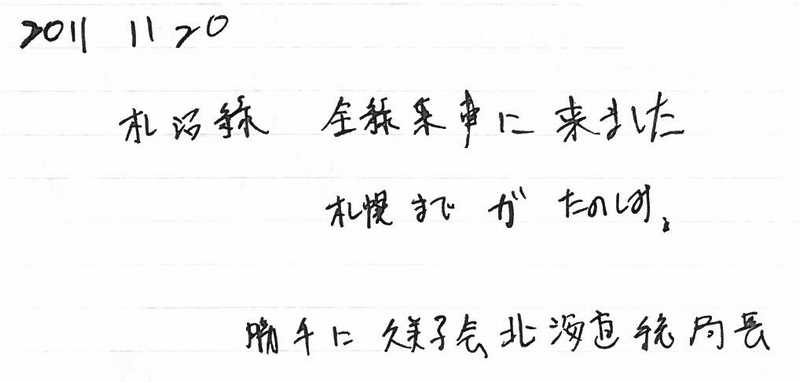 2011 11 20
札沼線 全線乗車に来ました
札幌までがたのしみ。
勝手に久美子会北海道総局長